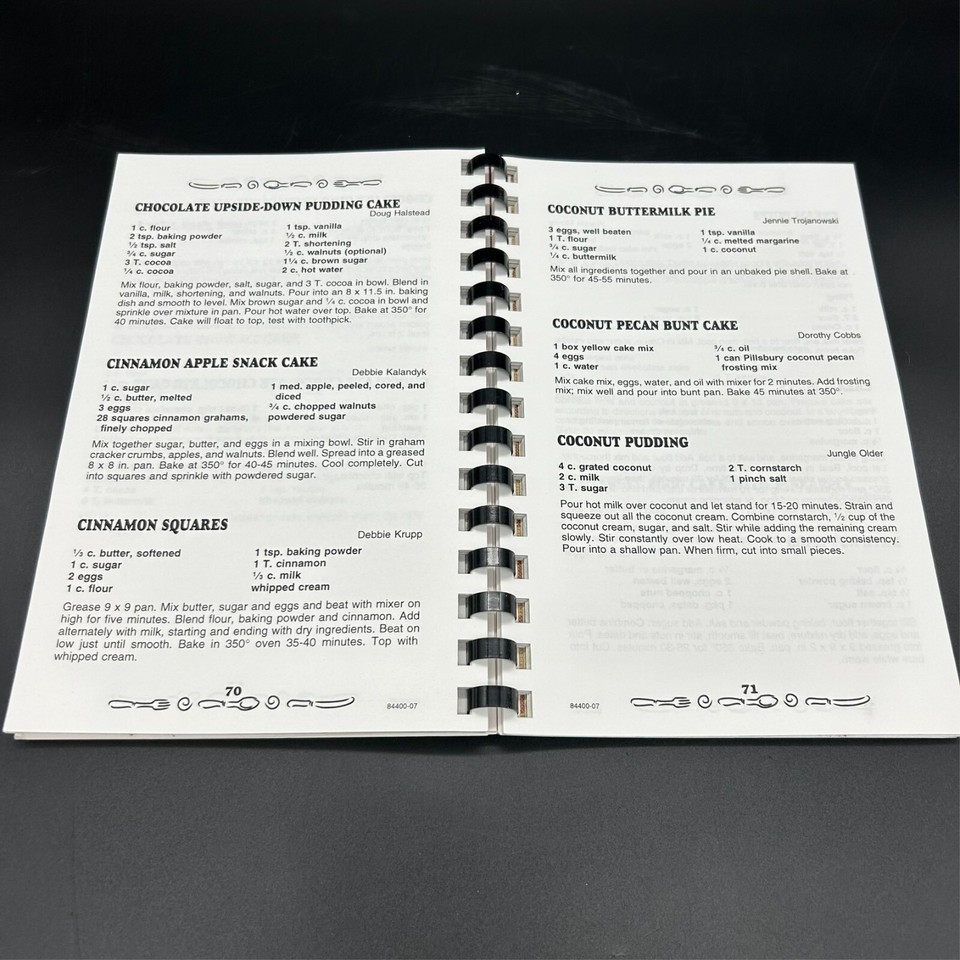 CHOCOLATE UPSIDE-DOWN PUDDING CAKE
Doug Halstead
1 c. flour
2 tsp. baking powder
½ tsp. salt
¾ c. sugar
3 T. cocoa
¼ c. cocoa
1 tsp. vanilla
½ c. milk
2 T. shortening
½ c. walnuts (optional)
1¼ c. brown sugar
2 c. hot water
Mix flour, baking powder, salt, sugar, and 3 T. cocoa in bowl. Blend in
vanilla, milk, shortening, and walnuts. Pour into an 8 x 11.5 in. baking
dish and smooth to level. Mix brown sugar and ¼ c. cocoa in bowl and
sprinkle over mixture in pan. Pour hot water over top. Bake at 350° for
40 minutes. Cake will float to top, test with toothpick.
CINNAMON APPLE SNACK CAKE
Debbie Kalandyk
1 c. sugar
½ c. butter, melted
3 eggs
28 squares cinnamon grahams,
finely chopped
1 med. apple, peeled, cored, and
diced
¾ c. chopped walnuts
powdered sugar
Mix together sugar, butter, and eggs in a mixing bowl. Stir in graham
cracker crumbs, apples, and walnuts. Blend well. Spread into a greased
8 x 8 in. pan. Bake at 350° for 40-45 minutes. Cool completely. Cut
into squares and sprinkle with powdered sugar.
CINNAMON SQUARES
Debbie Krupp
⅓ c. butter, softened
1 c. sugar
2 eggs
1 c. flour
1 tsp. baking powder
1 T. cinnamon
⅓ c. milk
whipped cream
Grease 9 x 9 pan. Mix butter, sugar and eggs and beat with mixer on
high for five minutes. Blend flour, baking powder and cinnamon. Add
alternately with milk, starting and ending with dry ingredients. Beat on
low just until smooth. Bake in 350° oven 35-40 minutes. Top with
whipped cream.
70
84400-07
COCONUT BUTTERMILK PIE
Jennie Trojanowski
3 eggs, well beaten
1 T. flour
¾ c. sugar
¼ c. buttermilk
1 tsp. vanilla
¼ c. melted margarine
1 c. coconut
Mix all ingredients together and pour in an unbaked pie shell. Bake at
350° for 45-55 minutes.
COCONUT PECAN BUNT CAKE
Dorothy Cobbs
1 box yellow cake mix
4 eggs
1 c. water
¾ c. oil
1 can Pillsbury coconut pecan
frosting mix
Mix cake mix, eggs, water, and oil with mixer for 2 minutes. Add frosting
mix; mix well and pour into bunt pan. Bake 45 minutes at 350°.
COCONUT PUDDING
Jungle Older
4 c. grated coconut
2 c. milk
3 T. sugar
2 T. cornstarch
1 pinch salt
Pour hot milk over coconut and let stand for 15-20 minutes. Strain and
squeeze out all the coconut cream. Combine cornstarch, ½ cup of the
coconut cream, sugar, and salt. Stir while adding the remaining cream
slowly. Stir constantly over low heat. Cook to a smooth consistency.
Pour into a shallow pan. When firm, cut into small pieces.
84400-07
71